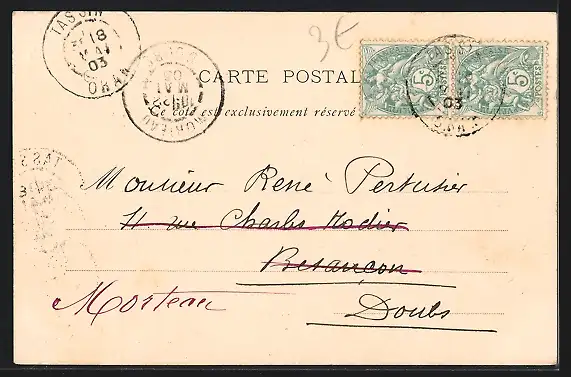 TASSIN
18
MAI
03
ORAN
3€
CARTE POSTAL
Ce côté est exclusivement réservé
5
POSTES
5
POSTES
03
ORAN
DOUBS
MAI
03
MORTEAU
TASS
Monsieur René Pertusier
11 rue Charles Nodier
Besançon
Morteau
Doubs